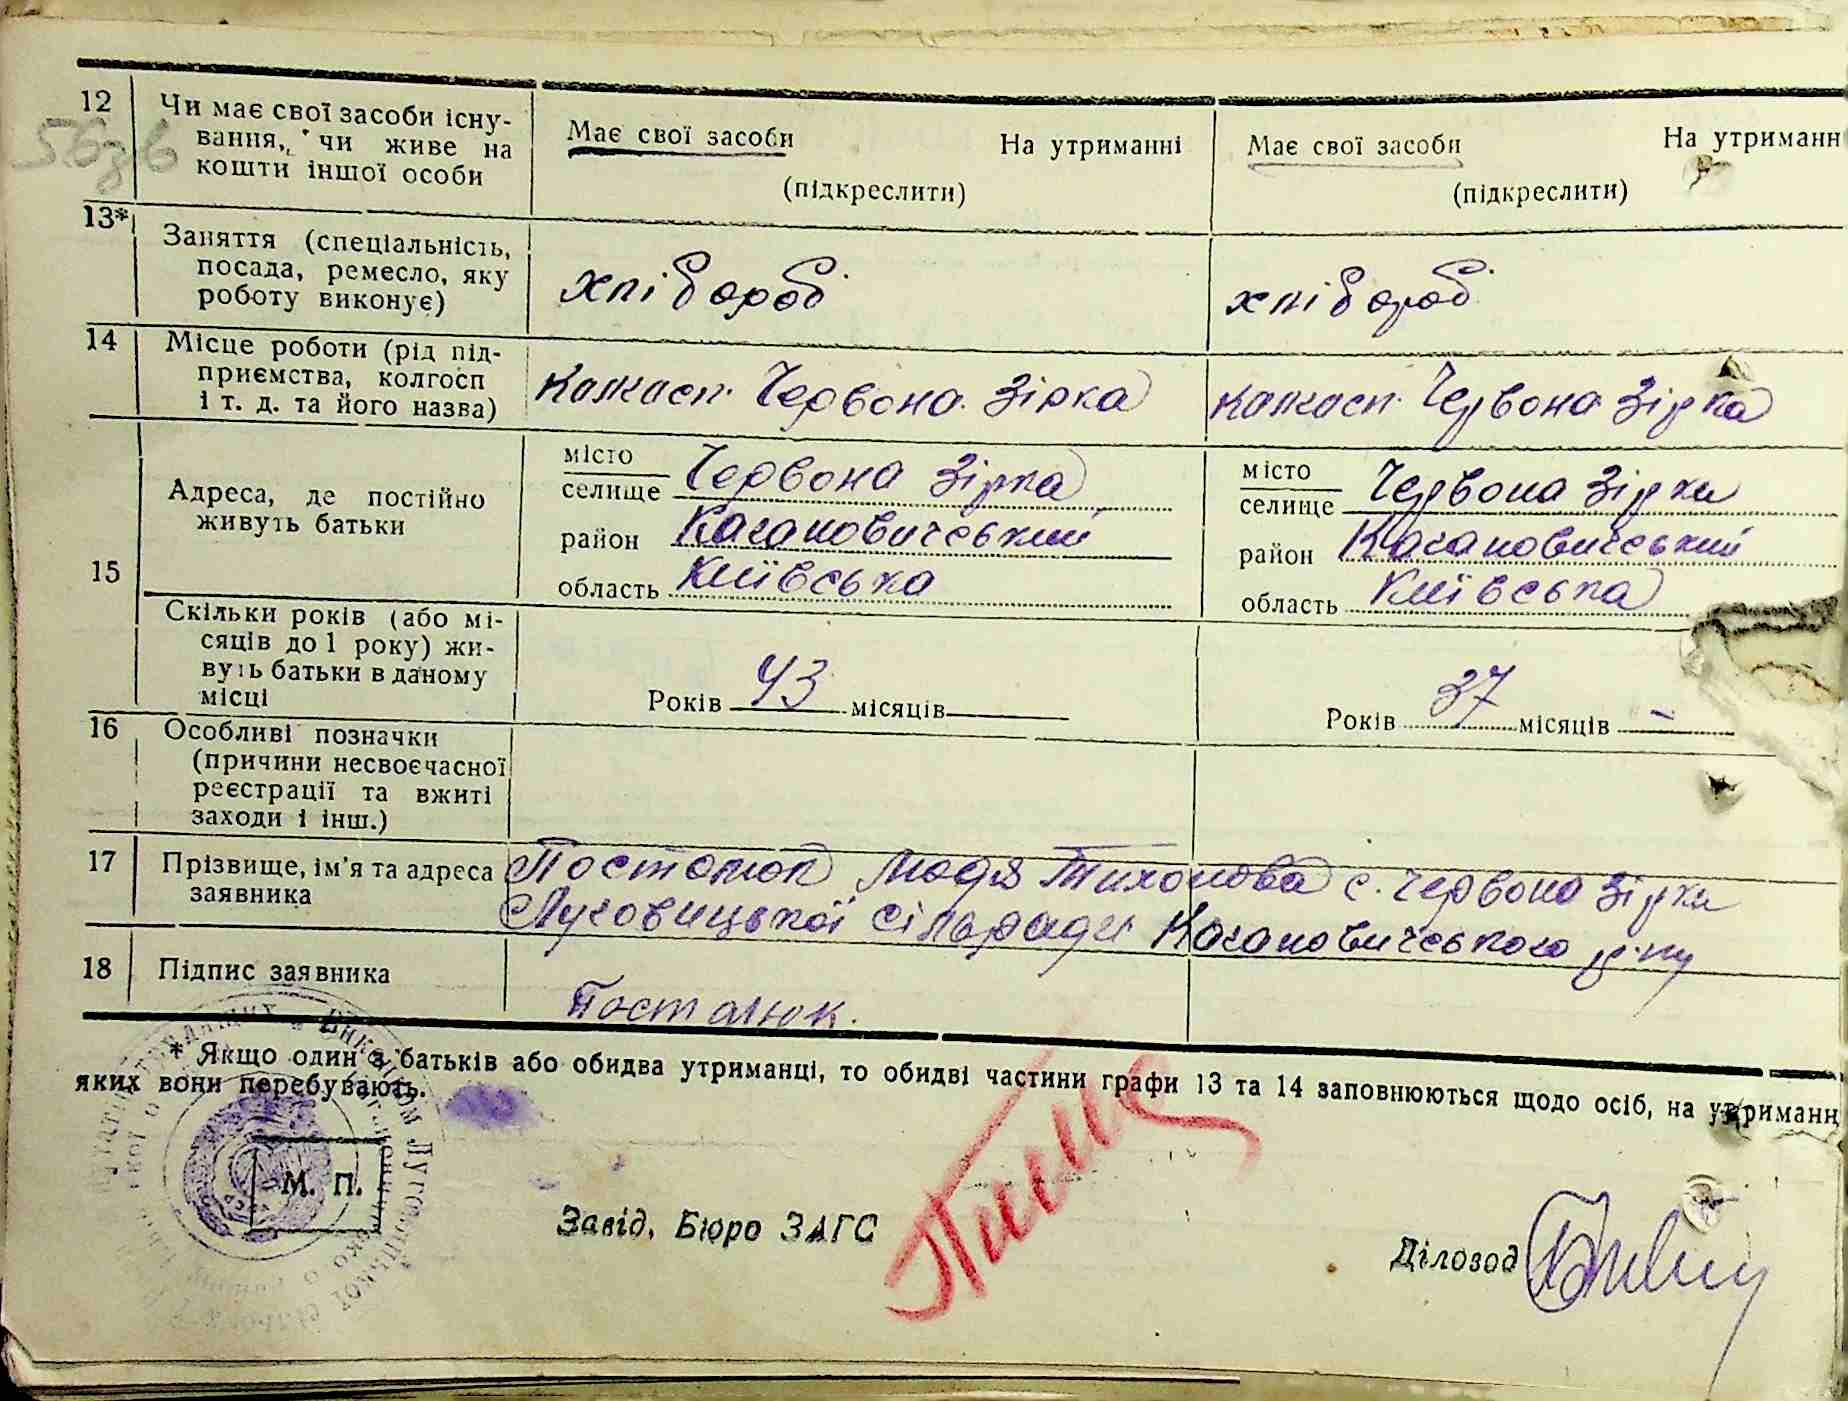 12
Чи має свої засоби існу-
вання, чи живе на
кошти іншої особи
Має свої засоби На утриманні
(підкреслити)
Має свої засоби На утриманн
(підкреслити)
13*
Заняття (спеціальність,
посада, ремесло, яку
роботу виконує)
хлібороб
хлібороб
14
Місце роботи (рід під-
приємства, колгосп
і т. д. та його назва)
Колхосп. Червона Зірка
Колхосп. Червона Зірка
15
Адреса, де постійно
живуть батьки
місто
селище Червона Зірка
район Кагановичевський
область Київська
місто
селище Червона Зірка
район Кагановичевський
область Київська
Скільки років (або мі-
сяців до 1 року) жи-
вуть батьки в даному
місці
Років 43 місяців
Років 37 місяців –
16
Особливі позначки
(причини несвоєчасної
реєстрації та вжиті
заходи і інш.)
17
Прізвище, ім'я та адреса
заявника
Постолюк Тихонова с. Червона Зірка
Луговицької сільради Кагановичевського р-ну
18
Підпис заявника
Постолюк.
* Якщо один з батьків або обидва утриманці, то обидві частини графи 13 та 14 заповнюються щодо осіб, на утриманн
яких вони перебувають.
М. П.
Завід. Бюро ЗАГС
Діловод